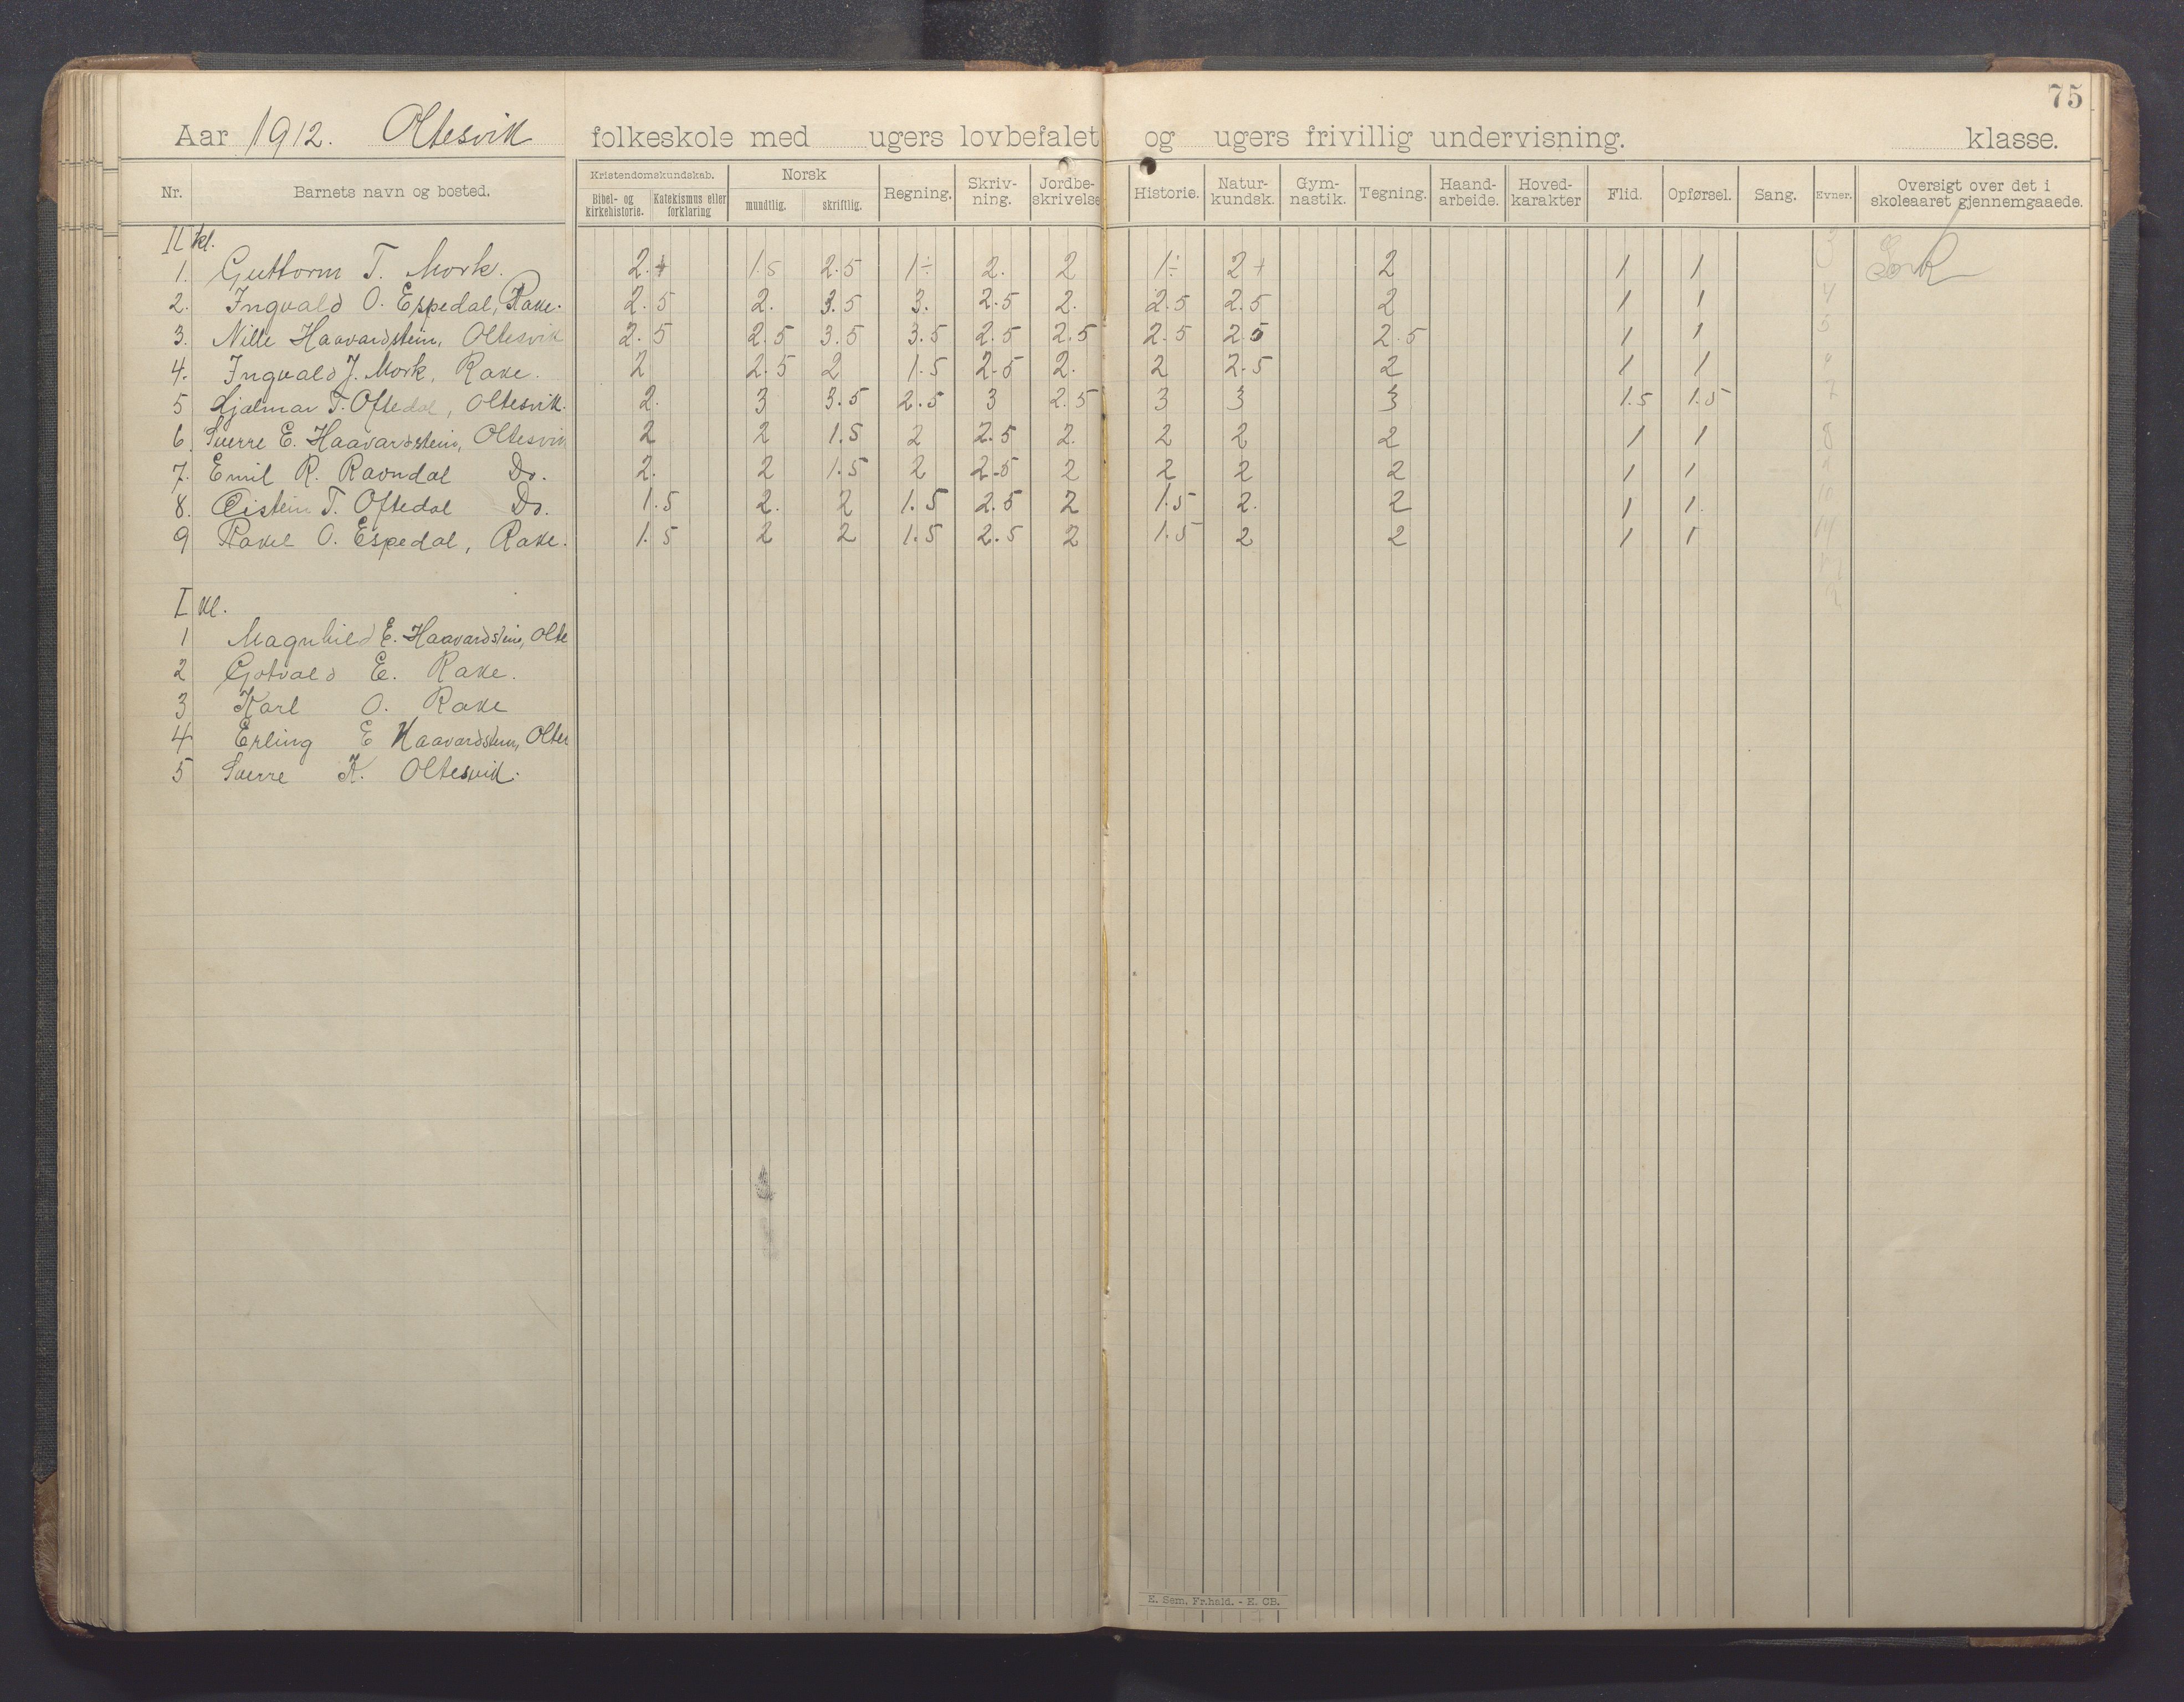 75
Aar 1912. Oltesvik folkeskole med ugers lovbefalet og ugers frivillig undervisning. klasse.
Nr. Barnets navn og bosted. Kristendomskundskab. Bibel- og kirkehistorie. Katekismus eller forklaring Norsk mundtlig. skriftlig. Regning. Skriv-ning. Jordbe-skrivelse Historie. Natur-kundsk. Gym-nastik. Tegning. Haand-arbeide. Hoved-karakter Flid. Opførsel. Sang. Evner. Oversigt over det i skoleaaret gjennemgaaede.
II kl.
1. Guttorm T. Mork. 2.+ 1.5 2.5 1÷ 2. 2 1÷ 2+ 2 1 1 3
2. Ingvald O. Espedal, Rake. 2.5 2. 3.5 3. 2.5 2. 2.5 2.5 2 1 1 4
3. Nille Haavardstein, Oltesvik 2.5 2.5 3.5 3.5 2.5 2.5 2.5 2.5 2.5 1 1 5
4. Ingvald J. Mork, Rake. 2 2.5 2 1.5 2.5 2. 2 2.5 2 1 1
5 Hjalmar T. Oftedal, Oltesvik. 2. 3 3.5 2.5 3 2.5 3 3 3 1.5 1.5 7
6. Sverre E. Haavardstein, Oltesvik 2 2 1.5 2 2.5 2. 2 2 2 1 1 8
7. Emil R. Ravndal Do. 2. 2 1.5 2 2.5 2 2 2 2 1 1
8. Øistein T. Oftedal Do. 1.5 2. 2 1.5 2.5 2 1.5 2. 2 1 1. 10
9 Rakel O. Espedal, Rake. 1.5 2 2 1.5 2.5 2 1.5 2 2 1 1
I kl.
1 Magnhild E. Haavardstein, Olte
2 Gotvald E. Rake.
3 Karl O. Rake
4 Erling E Haavardstein, Oltes
5 Sverre K. Oltesvik.
E. Sem. Fr.hald. - E. CB.